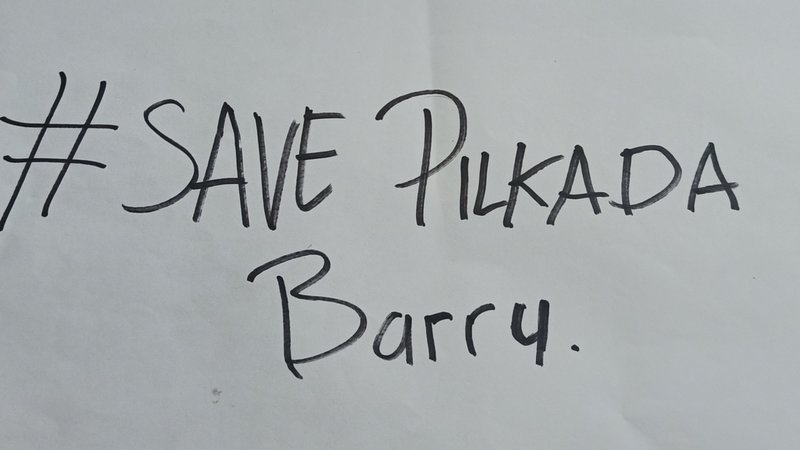 #SAVE PILKADA
Barru.